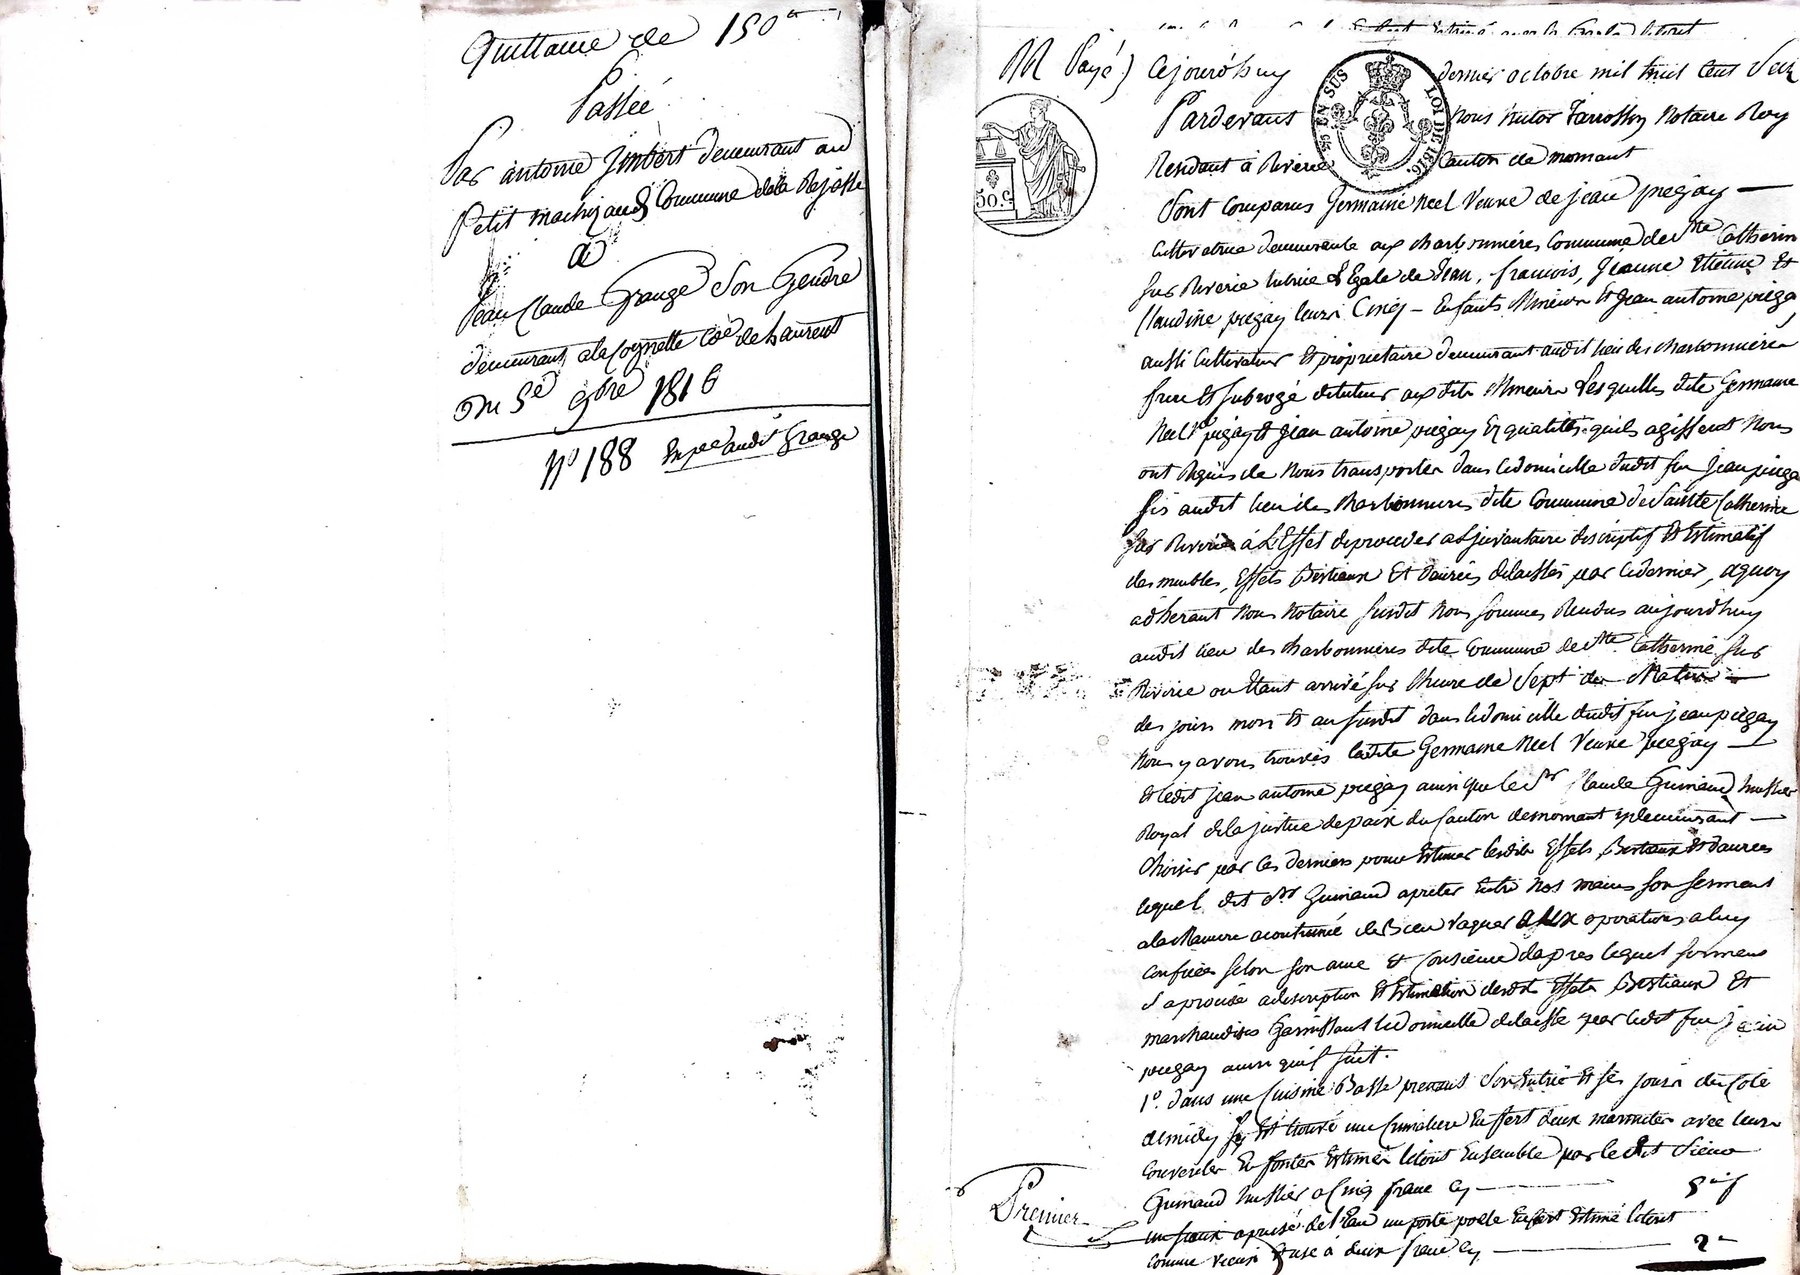 Quittance de 150 tt
Passée
Par antoine Jmbert demeurant au
Petit machizaud Commune de la Rajasse
a
Jean Claude Grange Son Gendre
demeurant a la Cognette Cne de St Laurent
Du 5e 9bre 1816
No 188 Expee audit Grange
M Payé) Cejourdhuy dernier octobre mil huit Cent Seize
Pardevant Nous Notaire Roy
Rendant à Riverie Canton de mornant
EN SUS LOI DE 1816.
50.C
Sont Comparus Germaine Neel Veuve de jean piegay
Cultivatrice demeurante aux charbonnieres Commune de Ste Catherin
sur Riverie tutrice Légale de Jean, francois, Jeanne Etienne Et
Claudine piegay leurs Cinq Enfants Mineurs Et Jean antoine piega
aussi Cultivateur Et propriétaire demeurant audit lieu des charbonnieres
frere Et subrogé dituteur aux dits Mineurs Lesquelles dite Germaine
Neel Ve piegay Et Jean antoine piegay Es qualités quils agissent Nous
ont Requis de Nous transporter dans ledomicille dudit feu Jean piega
sis audit lieu des charbonnieres dite Commune de Sainte Catherine
sur Riverie à L'Effet deproceder a Linvantaire discriptif Et Estimatif
des meubles, Effets Bestiaux Et danrées délaissés par ledernier, aquoy
adherant Nous Notaire susdit Nous sommes Rendus aujourdhuy
audit lieu des charbonnieres dite Commune de Ste Catherine sur
Riverie ou Etant arrivé sur l'heure de Sept du Matin
des jours mois Et an susdit dans ledomicille dudit feu jean piegay
Nous y avons trouvés ladite Germaine Neel Veuve piegay
Et ledit jean antoine piegay ainsi que le Sr Claude Guinand huissier
Royal de la justice depaix du Canton demornant y demeurant
choisir par Ces derniers pour Estimer lesdits Effets Bestiaux Et danrees
lequel dit Sr Guinand apreter Entre Nos mains son serment
ala Maniere acoutumée de Bien vaquer aux opérations aluy
Confiées selon son ame Et Consience dapres lequel serment
Sa procédé adiscription Et Estimation desdits Effets Bestiaux Et
marchandises Garnissant ledomicille delaissé par ledit feu Jean
piegay ainsi quil suit.
1o. dans une Cuisine Basse prenant Son Entrée Et ses jours du Coté
demidy sy Est trouvé une Cremaliere En fert deux marmites avec leurs
Couvercles En fontes Estimés letout Ensemble par ledit Sieur
Guinand huissier a Cinq franc Cy 5 f
un apuisé de l'Eau un porte poele En fert Estimé letout
Comme vieux Et usé à deux franc Cy 2
Premier